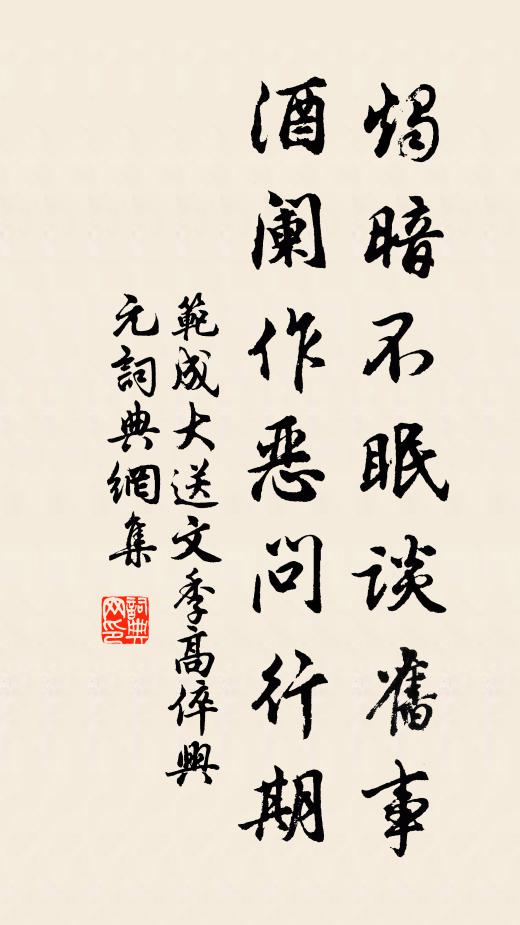 燭暗不眠談舊事
酒闌作惡問行期
範成大送文季高倅興
元詞典網集
詞典
网印